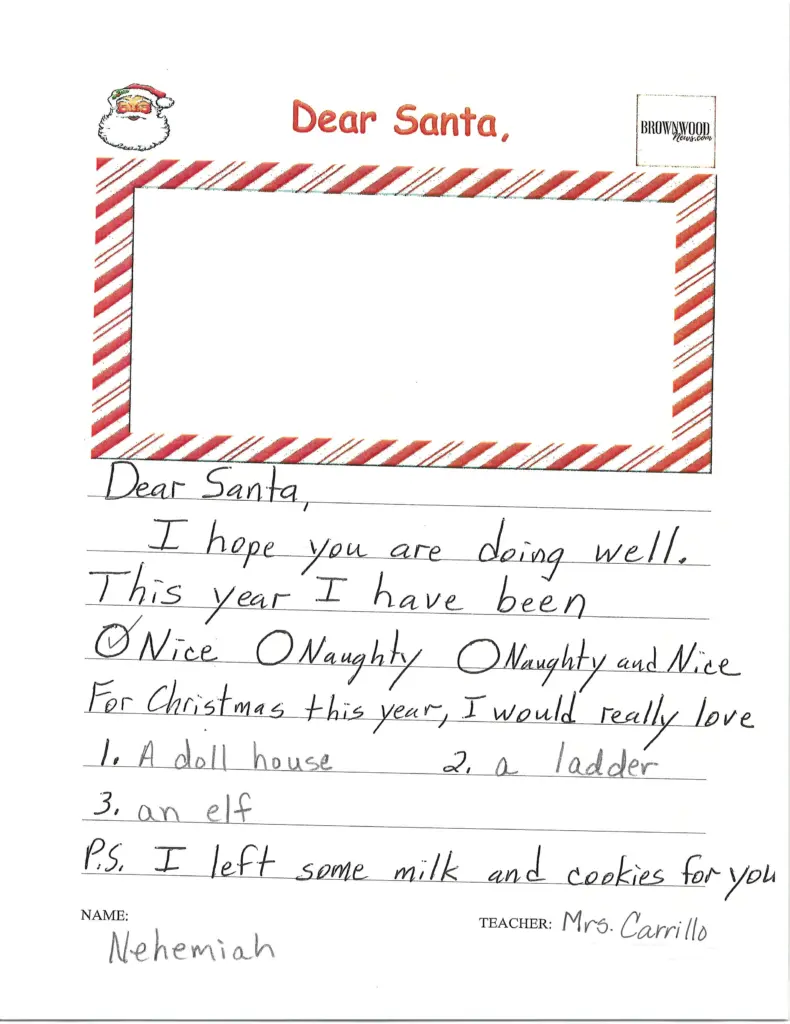 Dear Santa,
BROWNWOOD
News.com
Dear Santa,
I hope you are doing well.
This year I have been
Nice Naughty Naughty and Nice
For Christmas this year, I would really love
1. A doll house 2. a ladder
3. an elf
P.S. I left some milk and cookies for you
NAME: TEACHER: Mrs. Carrillo
Nehemiah